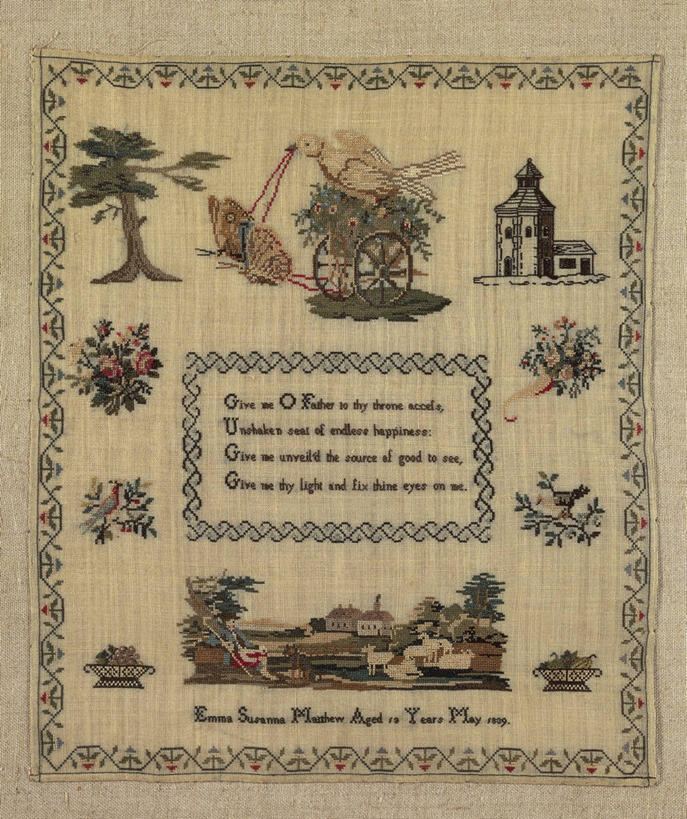 Give me O Father to thy throne accefs,
Unshaken seat of endless happiness:
Give me unveil'd the source of good to see,
Give me thy light and fix thine eyes on me.
Emma Susanna Matthew Aged Years May